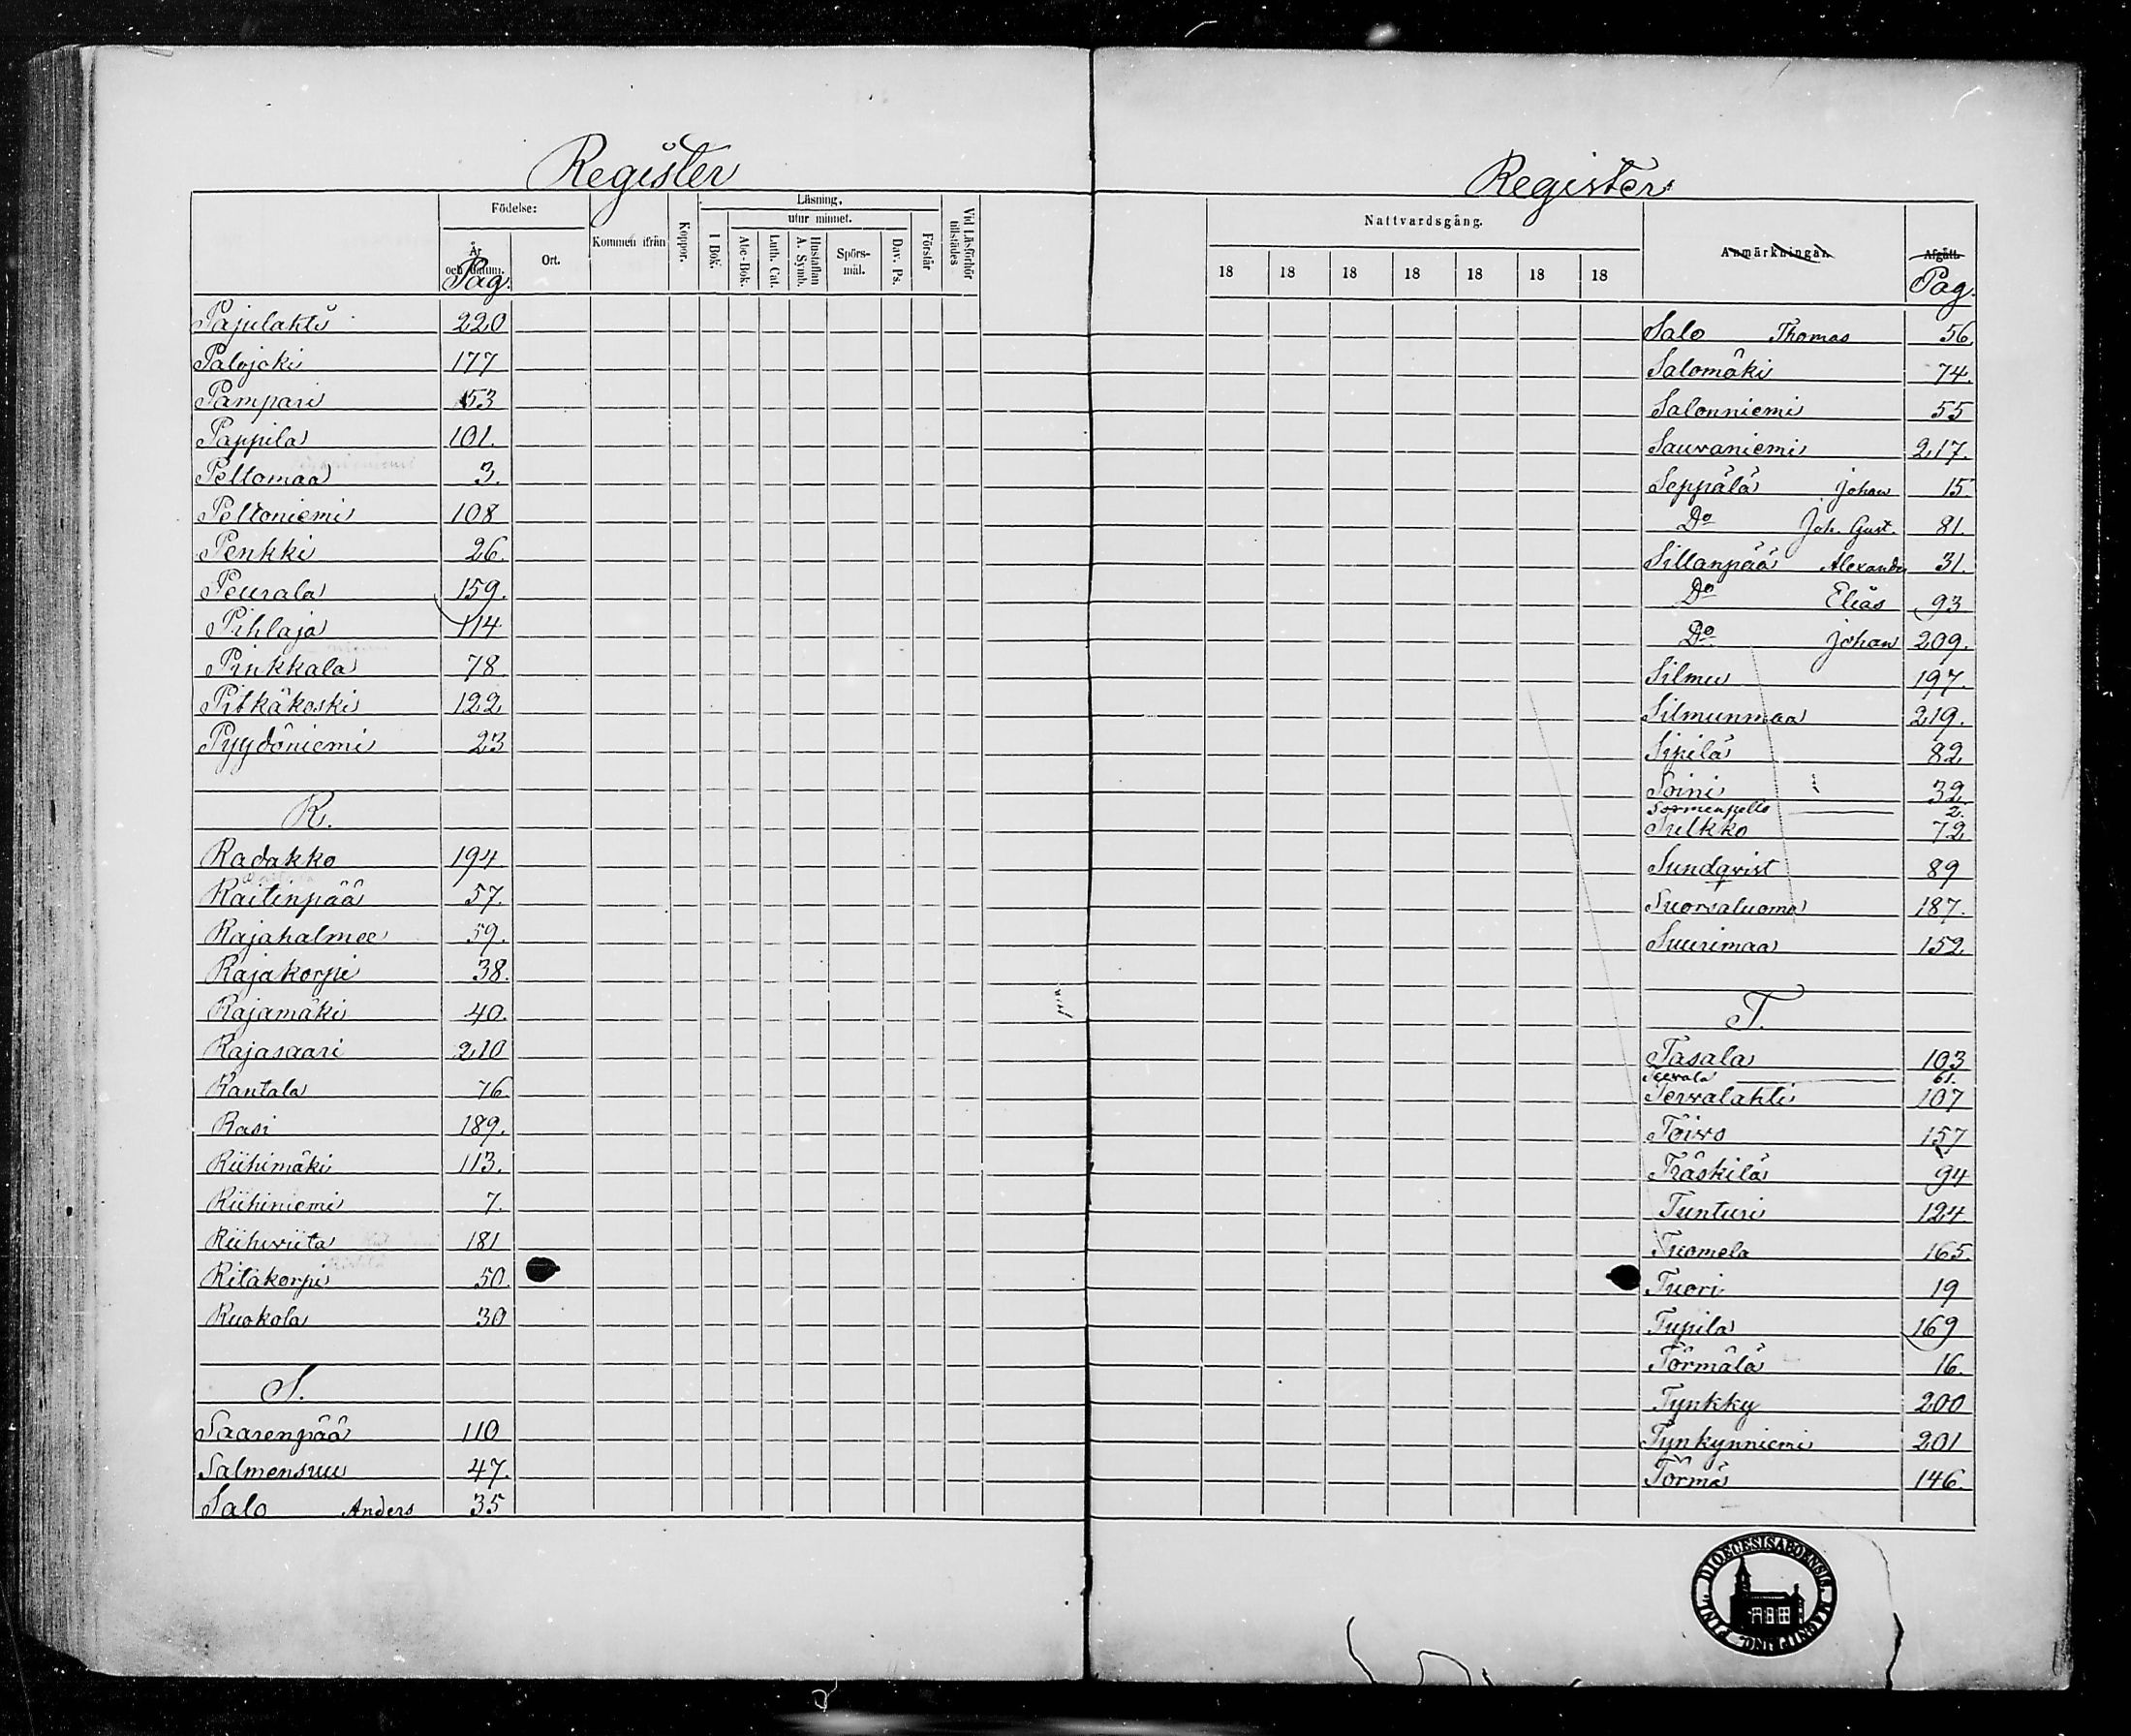 Register
Födelse:
År och datum.
Pag.
Ort.
Kommen ifrån
Koppor.
Läsning,
utur minnet.
I Bok.
Abc-Bok.
Luth. Cat.
Hustaflan A. Symb.
Spörs-mål.
Dav. Ps.
Förstår
Vid Läsförhör tillstädes
Pajulahti 220
Palojoki 177
Pampari 53
Pappila 101.
Peltomaa 3.
Peltoniemi 108
Penkki 26.
Peurala 159.
Pihlaja 114
Pinkkala 78.
Pitkäkoski 122
Pyydöniemi 23
R.
Radakko 194
Raitinpää 57.
Rajahalmee 59.
Rajakorpi 38.
Rajamäki 40.
Rajasaari 210
Rantala 76
Rasi 189.
Riihimäki 113.
Riihiniemi 7.
Riihiviita 181
Ritakorpi 50.
Ruokola 30
S.
Saarenpää 110
Salmensuu 47.
Salo Anders 35
Register
Nattvardsgång.
18 18 18 18 18 18 18
Anmärkningar
Afgått.
Pag.
Salo Thomas 56.
Salomäki 74.
Salonniemi 55
Sauvaniemi 217.
Seppälä Johan 15
Do Joh. Gust. 81.
Sillanpää Alexander 31.
Do Elias 93
Do Johan 209.
Silmu 197.
Silmunmaa 219.
Sipilä 82
Soini 32.
Sormenpelto 2.
Sulkko 72
Sundqvist 89
Suorsaluoma 187.
Suurimaa 152
T.
Tasala 103
61.
Tervalahti 107
Toivo 157
Träskilä 94
Tunturi 124.
Tuomela 165.
Tuori 19
Tupila 169
Törmälä 16.
Tynkky 200
Tynkynniemi 201
Törmä 146.
DIOECESIS ABOENSIS. MAGNI PRINC. FINL.